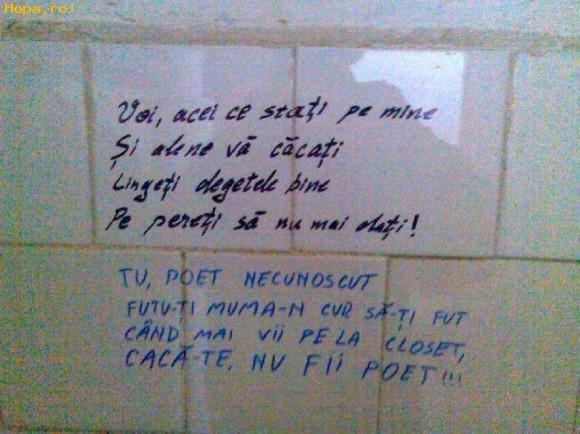 Hopa.ro!
Voi, acei ce stați pe mine
Și alene vă căcați
Lingeți degetele bine
Pe pereți să nu mai dați!
TU, POET NECUNOSCUT
FUTU-ȚI MUMA-N CUR SĂ-ȚI FUT
CÂND MAI VII PE LA CLOSET,
CACĂ-TE, NU FII POET!!!